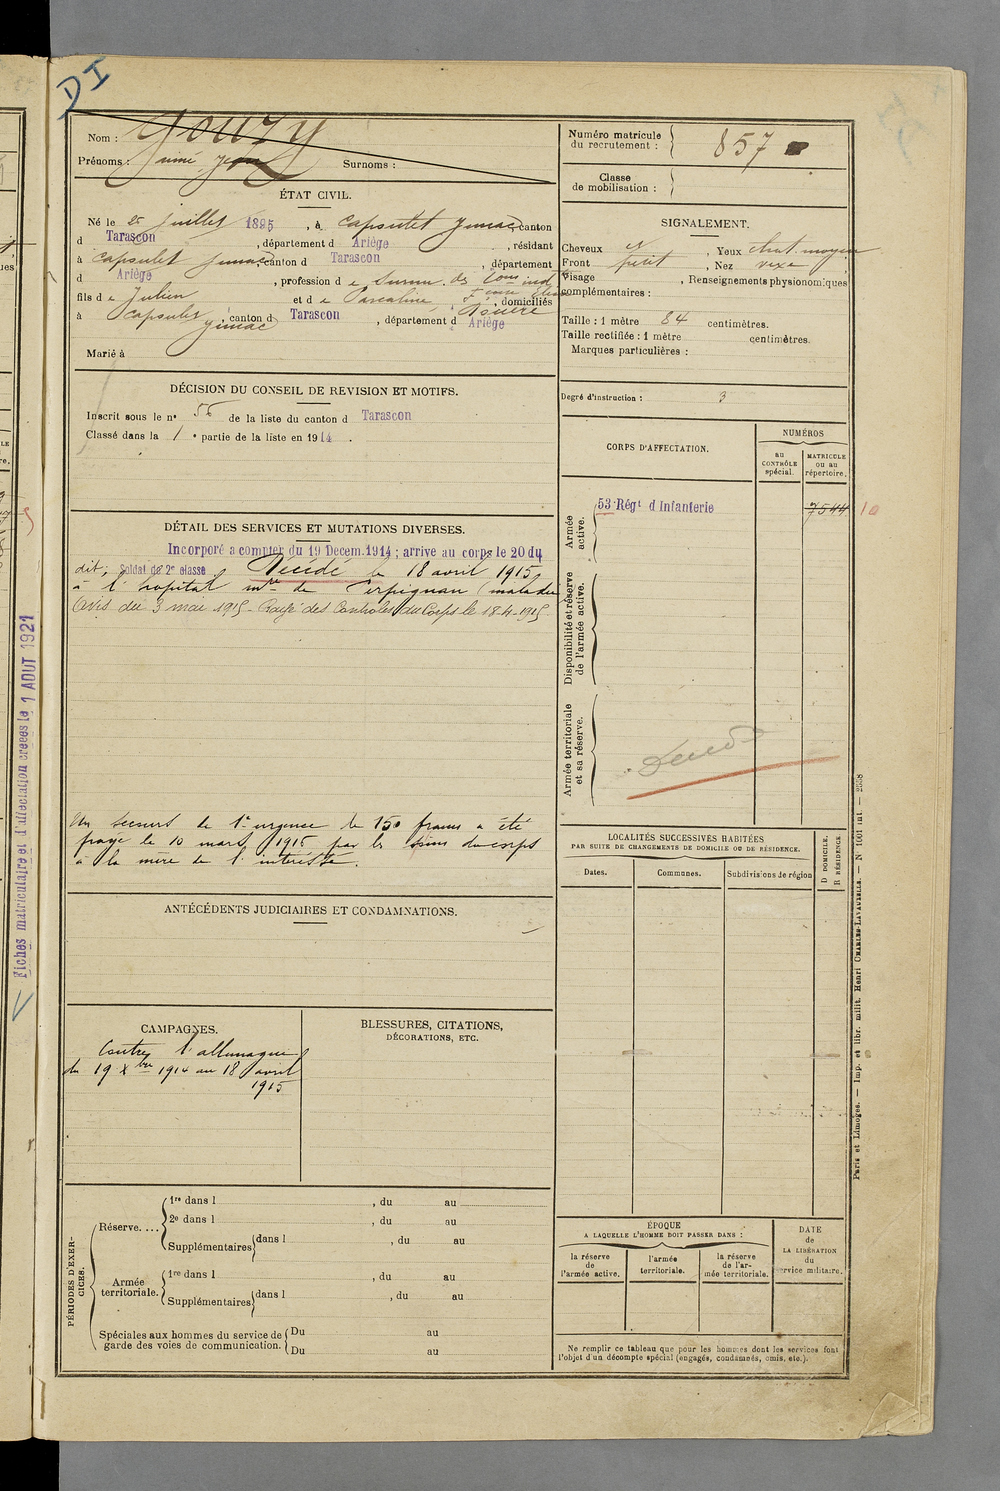 DI
Nom : Gouzy
Prénoms : Jean Surnoms :
Numéro matricule
du recrutement : 857
Classe
de mobilisation :
ÉTAT CIVIL.
Né le 25 juillet 1895, à Capoulet Junac canton
d Tarascon, département d Ariège, résidant
à Capoulet Junac, canton d Tarascon, département
d Ariège, profession d
fils de Julien et de Pascaline, domiciliés
à Capoulet Junac, canton d Tarascon, département d Ariège
Marié à
SIGNALEMENT.
Cheveux, Yeux chat. moyen
Front petit, Nez vexe
Visage, Renseignements physionomiques
complémentaires :
Taille : 1 mètre 84 centimètres.
Taille rectifiée : 1 mètre centimètres.
Marques particulières :
Degré d'instruction : 3
DÉCISION DU CONSEIL DE REVISION ET MOTIFS.
Inscrit sous le n° 56 de la liste du canton d Tarascon
Classé dans la 1e partie de la liste en 1914.
CORPS D'AFFECTATION.
NUMÉROS
au
CONTRÔLE
spécial.
MATRICULE
ou au
répertoire.
Armée
active.
53e Régt d'Infanterie
7544
10
Disponibilité et réserve
de l'armée active.
Armée territoriale
et sa réserve.
Décédé
DÉTAIL DES SERVICES ET MUTATIONS DIVERSES.
Incorporé a compter du 19 Decem. 1914 ; arrive au corps le 20 du
dit ; Soldat de 2e classe Décédé le 18 avril 1915
à l'hopital mre de Perpignan (maladie
(Avis du 3 mai 1915. Rayé des Contrôles du Corps le 18-4-1915
Un secours de 1re urgence de 150 francs a été
payé le 10 mars 1915 par les soins du corps
à la mère de l'intéressé.
LOCALITÉS SUCCESSIVES HABITÉES
PAR SUITE DE CHANGEMENTS DE DOMICILE OU DE RÉSIDENCE.
Dates.
Communes.
Subdivisions de région
D DOMICILE.
R RÉSIDENCE
ANTÉCÉDENTS JUDICIAIRES ET CONDAMNATIONS.
CAMPAGNES.
Contre l'allemagne
du 19 Xbre 1914 au 18 avril
1915
BLESSURES, CITATIONS,
DÉCORATIONS, ETC.
PÉRIODES D'EXER-
CICES.
Réserve....
1re dans l , du au
2e dans l , du au
Supplémentaires dans l , du au
Armée
territoriale.
1re dans l , du au
Supplémentaires dans l , du au
Spéciales aux hommes du service de
garde des voies de communication.
Du au
Du au
ÉPOQUE
A LAQUELLE L'HOMME DOIT PASSER DANS :
la réserve
de
l'armée active.
l'armée
territoriale.
la réserve
de l'ar-
mée territoriale.
DATE
de
LA LIBÉRATION
du
service militaire.
Ne remplir ce tableau que pour les hommes dont les services font
l'objet d'un décompte spécial (engagés, condamnés, omis, etc.).
Fiches matriculaire et d'affectation créées le 1 AOUT 1921
Paris et Limoges. — Imp. et libr. milit. Henri CHARLES-LAVAUZELLE. — N° 1001 int. — 2558